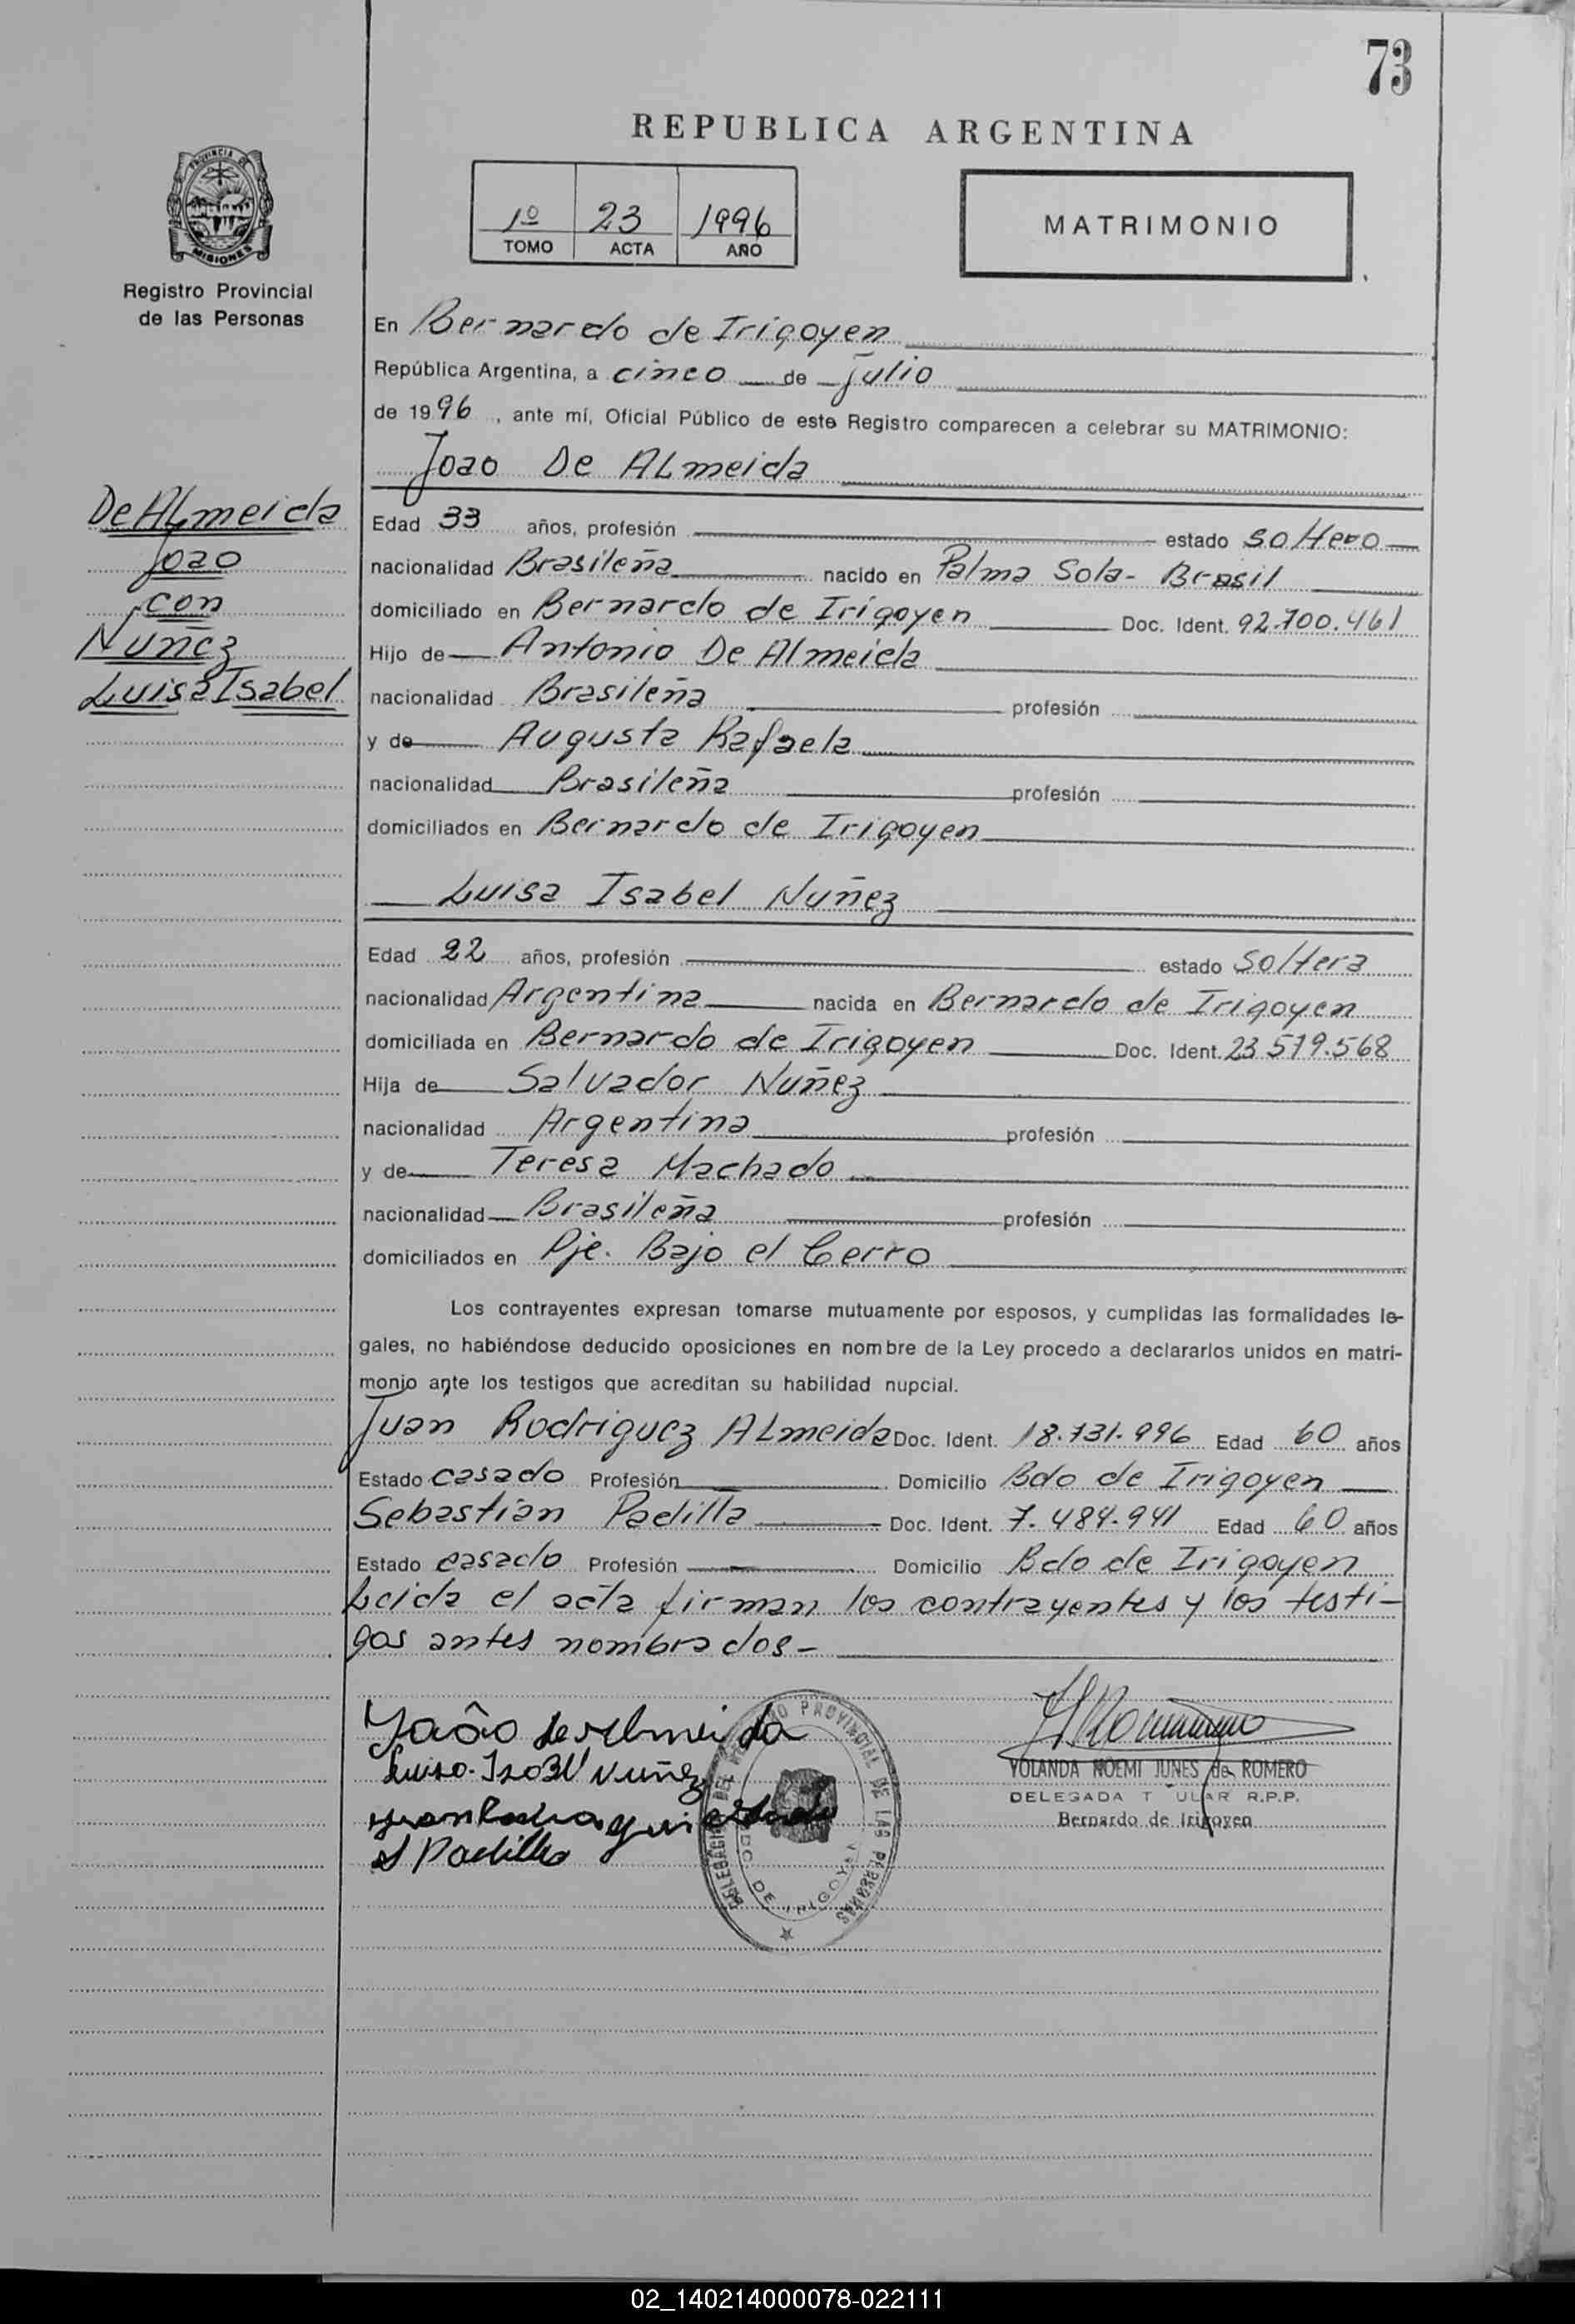 73
REPUBLICA ARGENTINA
PROVINCIA DE
MISIONES
Registro Provincial
de las Personas
1º 23 1996
TOMO ACTA AÑO
MATRIMONIO
En Bernardo de Irigoyen
República Argentina, a cinco de julio
de 1996, ante mí, Oficial Público de este Registro comparecen a celebrar su MATRIMONIO:
Joao De ALmeida
De ALmeida
Joao
con
Nuñez
Luisa Isabel
Edad 33 años, profesión estado soltero
nacionalidad Brasileña nacido en Palma Sola - Brasil
domiciliado en Bernardo de Irigoyen Doc. Ident. 92.700.461
Hijo de Antonio De Almeida
nacionalidad Brasileña profesión
y de Augusta Rafaela
nacionalidad Brasileña profesión
domiciliados en Bernardo de Irigoyen
Luisa Isabel Nuñez
Edad 22 años, profesión estado soltera
nacionalidad Argentina nacida en Bernardo de Irigoyen
domiciliada en Bernardo de Irigoyen Doc. Ident. 23.519.568
Hija de Salvador Nuñez
nacionalidad Argentina profesión
y de Teresa Machado
nacionalidad Brasileña profesión
domiciliados en Pje. Bajo el Cerro
Los contrayentes expresan tomarse mutuamente por esposos, y cumplidas las formalidades le-
gales, no habiéndose deducido oposiciones en nombre de la Ley procedo a declararlos unidos en matri-
monio ante los testigos que acreditan su habilidad nupcial.
Juan Rodriguez ALmeida Doc. Ident. 18.731.996 Edad 60 años
Estado casado Profesión Domicilio Bdo de Irigoyen
Sebastián Padilla Doc. Ident. 7.484.941 Edad 60 años
Estado casado Profesión Domicilio Bdo de Irigoyen
Leida el acta firman los contrayentes y los testi-
gos antes nombrados -
João de Almeida
Nuñez
S Padilla
DELEGACION DEL REGISTRO PROVINCIAL DE LAS PERSONAS
BDO. DE IRIGOYEN
YOLANDA NOEMI JUNES de ROMERO
DELEGADA T ULAR R.P.P.
Bernardo de Irigoyen
02_140214000078-022111